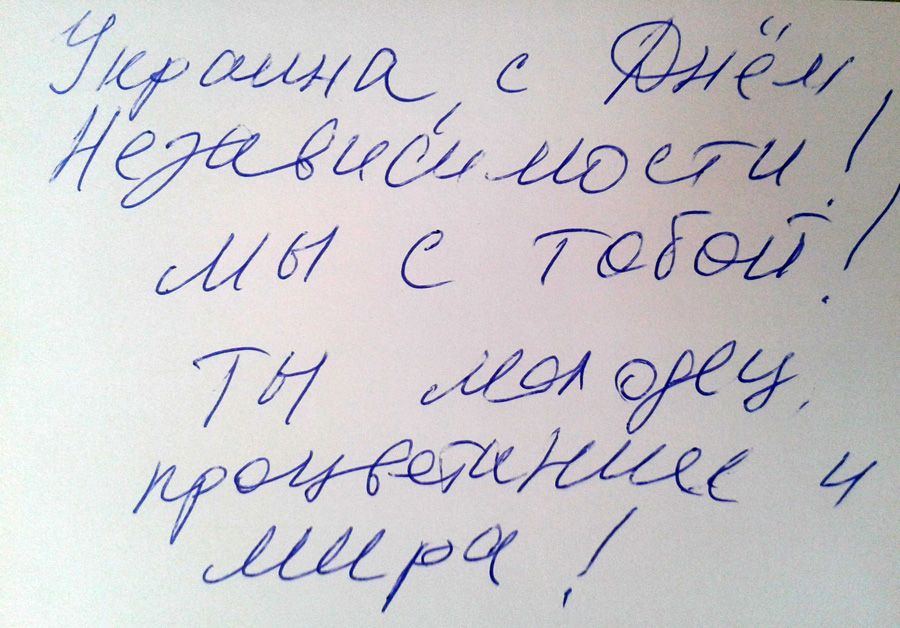 Украина, с Днём
Независимости!
мы с тобой!
ты молодец,
процветание и
мира!